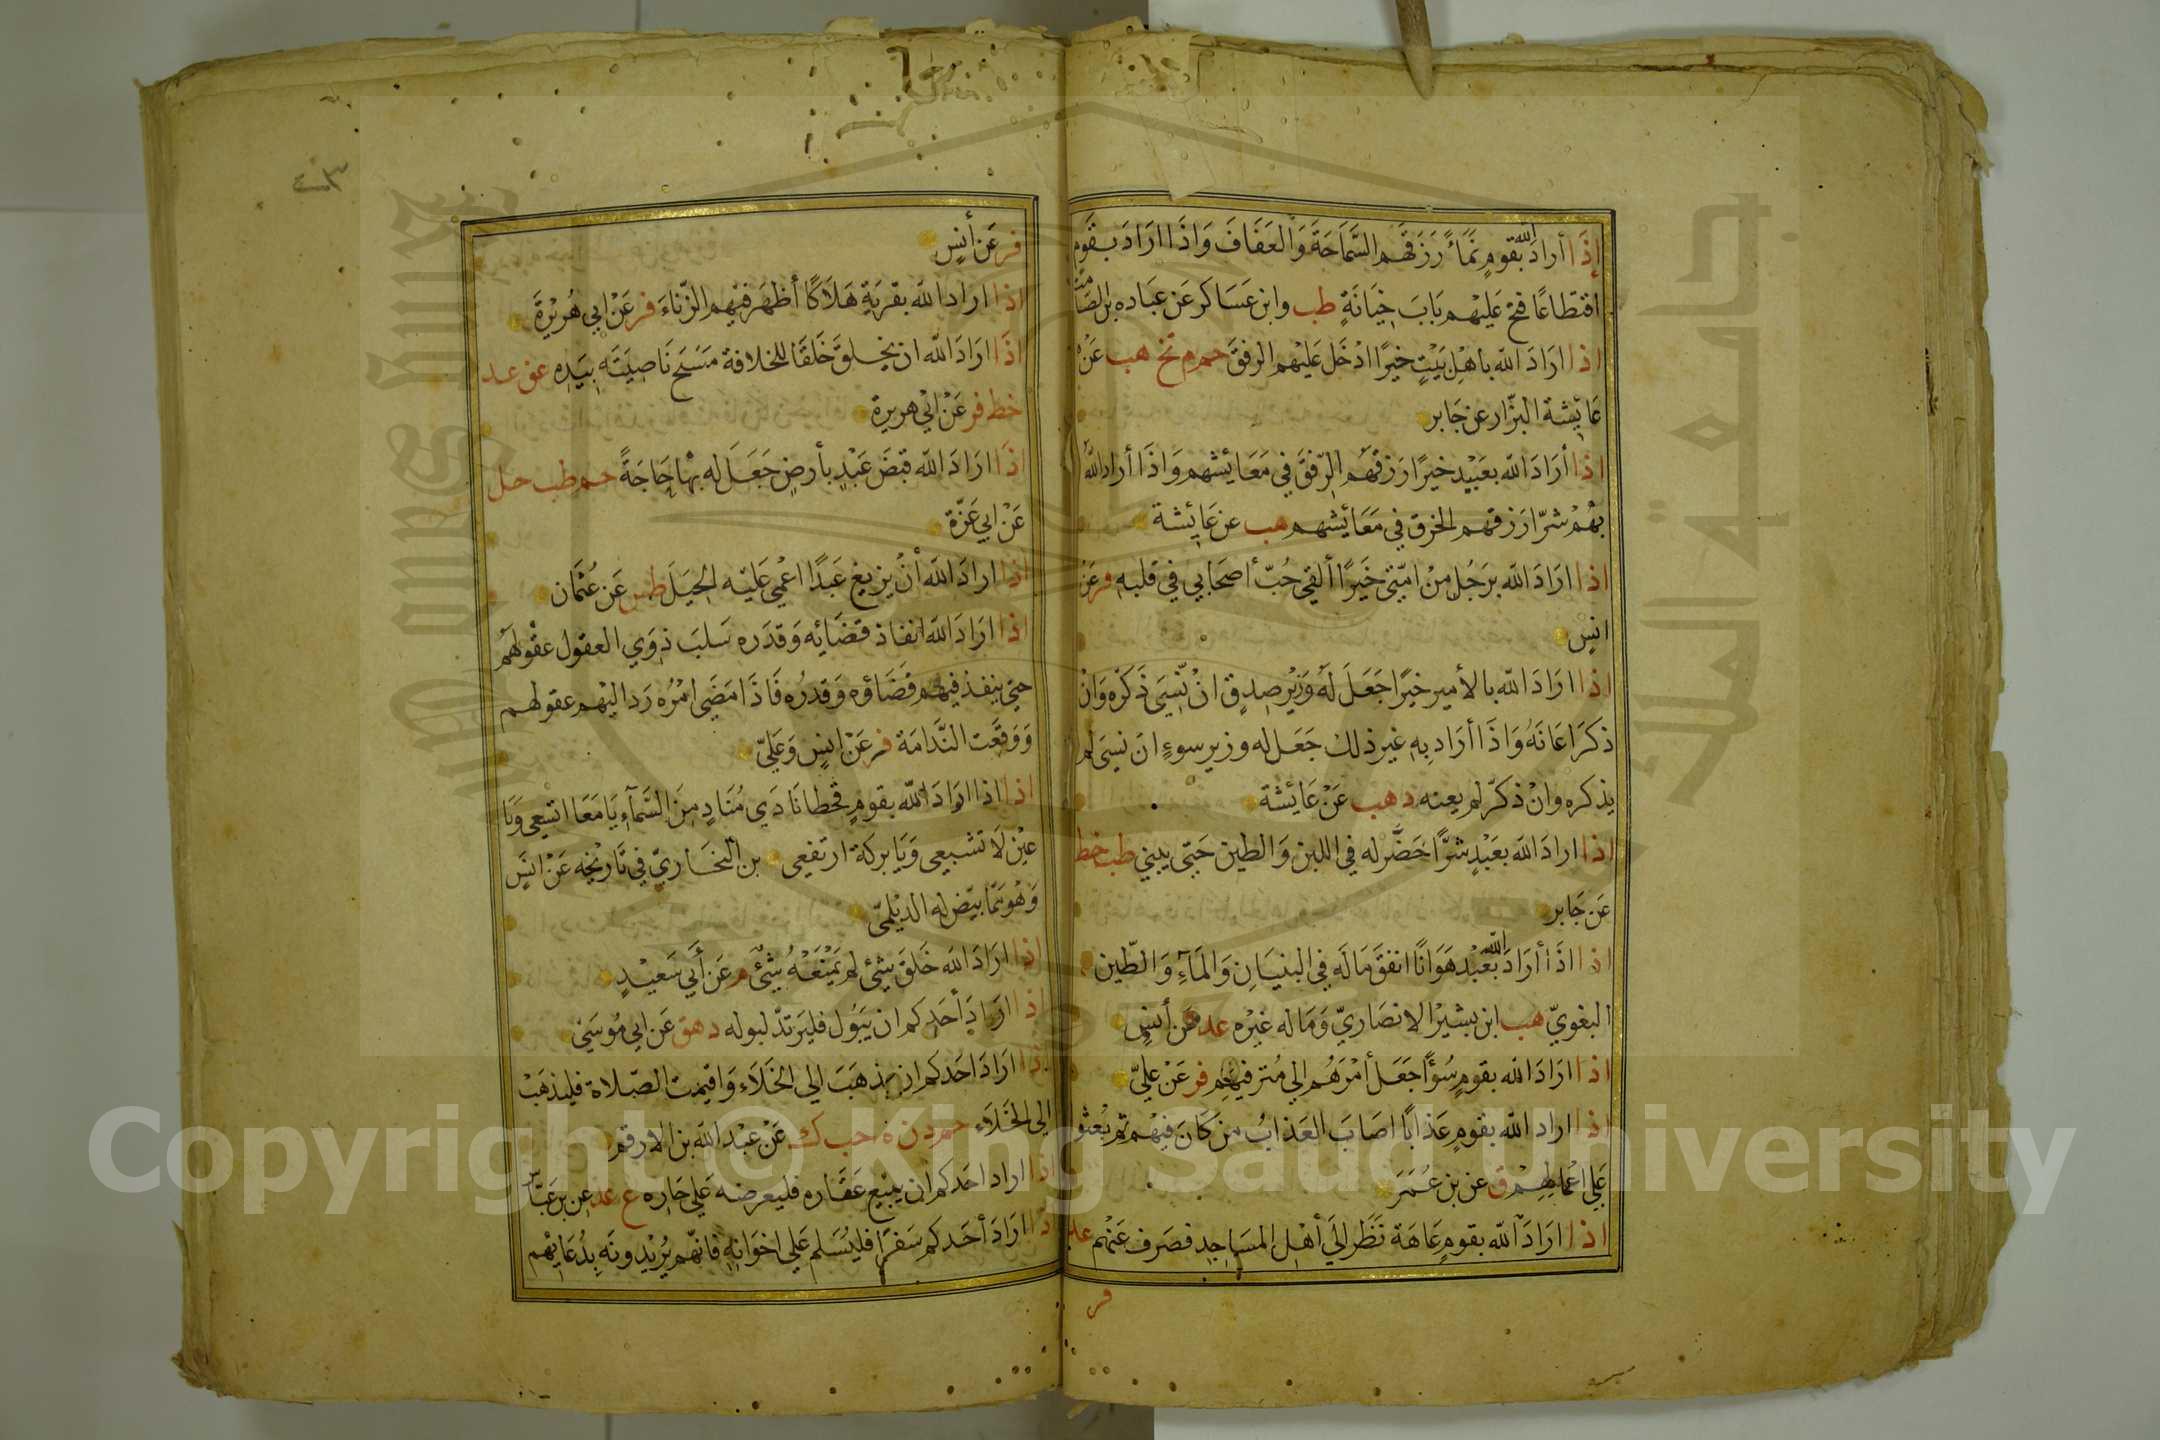 إذا أراد الله بقوم نماء رزقهم السماحة والعفاف واذا اراد بقوم
اقتطاعا فتح عليهم باب خيانة طب وابن عساكر عن عباده بن الصامت
اذا اراد الله باهل بيت خيرا ادخل عليهم الرفق حم م تخ هب عن
عائشة البزار عن جابر
اذا أراد الله بعبيد خيرا رزقهم الرفق في معائشهم واذا أراد الله
بهم شرا رزقهم الخرق في معائشهم هب عن عائشة
اذا اراد الله برجل من امتي خيرا ألقي حب أصحابي في قلبه فر عن
انس
اذا اراد الله بالأمير خيرا جعل له وزير صدق ان نسي ذكره وان
ذكر اعانه واذا أراد به غير ذلك جعل له وزير سوء ان نسى لم
يذكره وان ذكر لم يعنه د هب عن عائشة
اذا اراد الله بعبد شرا خضر له في اللبن والطين حتى يبني طب خط
عن جابر
اذا اذا أراد الله بعبد هوانا انفق ماله في البنيان والماء والطين
البغوي هب ابن بشير الانصاري وماله غيره عد عن أنس
اذا اراد الله بقوم سؤا جعل أمرهم الي مترفيهم فر عن علي
اذا اراد الله بقوم عذابا اصاب العذاب من كان فيهم ثم بعثوا
علي اعمالهم ق عن بن عمر
اذا اراد الله بقوم عاهة نظر الي أهل المساجد فصرف عنهم عد
فر
فر عن أنس
اذا اراد الله بقرية هلاكا أظهر فيهم الزناء فر عن ابي هريرة
اذا اراد الله ان يخلق خلقا للخلافة مسح ناصيته بيده عق عد
خط فر عن ابي هريرة
اذا اراد الله قبض عبد بأرض جعل له بها حاجة حم طب حل
عن ابي عزة
اذا اراد الله أن يزيغ عبدا اعمي عليه الحيل طس عن عثمان
اذا اراد الله انفاذ قضائه وقدره سلب ذوي العقول عقولهم
حتي ينفذ فيهم قضاؤه وقدره فاذا مضي امره رد اليهم عقولهم
ووقعت الندامة فر عن انس وعلي
اذا اذا اراد الله بقوم قحطا نادي مناد من السماء يا معا اتسعي ويا
عين لا تشبعي ويا بركة ارتفعي بن البخاري في تاريخه عن انس
وهو مما بيض له الديلمي
اذا اراد الله خلق شئ لم يمنعه شئ م عن أبي سعيد
اذا اراد أحدكم ان يبول فليرتد لبوله د هق عن ابي موسي
اذا اراد احدكم ان يذهب الي الخلاء واقيمت الصلاة فليذهب
الي الخلاء حم د ن ه حب ك عن عبد الله بن الارقم
اذا اراد احدكم ان يبيع عقاره فليعرضه علي جاره ع عد عن بن عباس
اذا اراد أحدكم سفرا فليسلم علي اخوانه فانهم يزيدونه بدعائهم
جامعة الملك سعود
King Saud University
Copyright © King Saud University